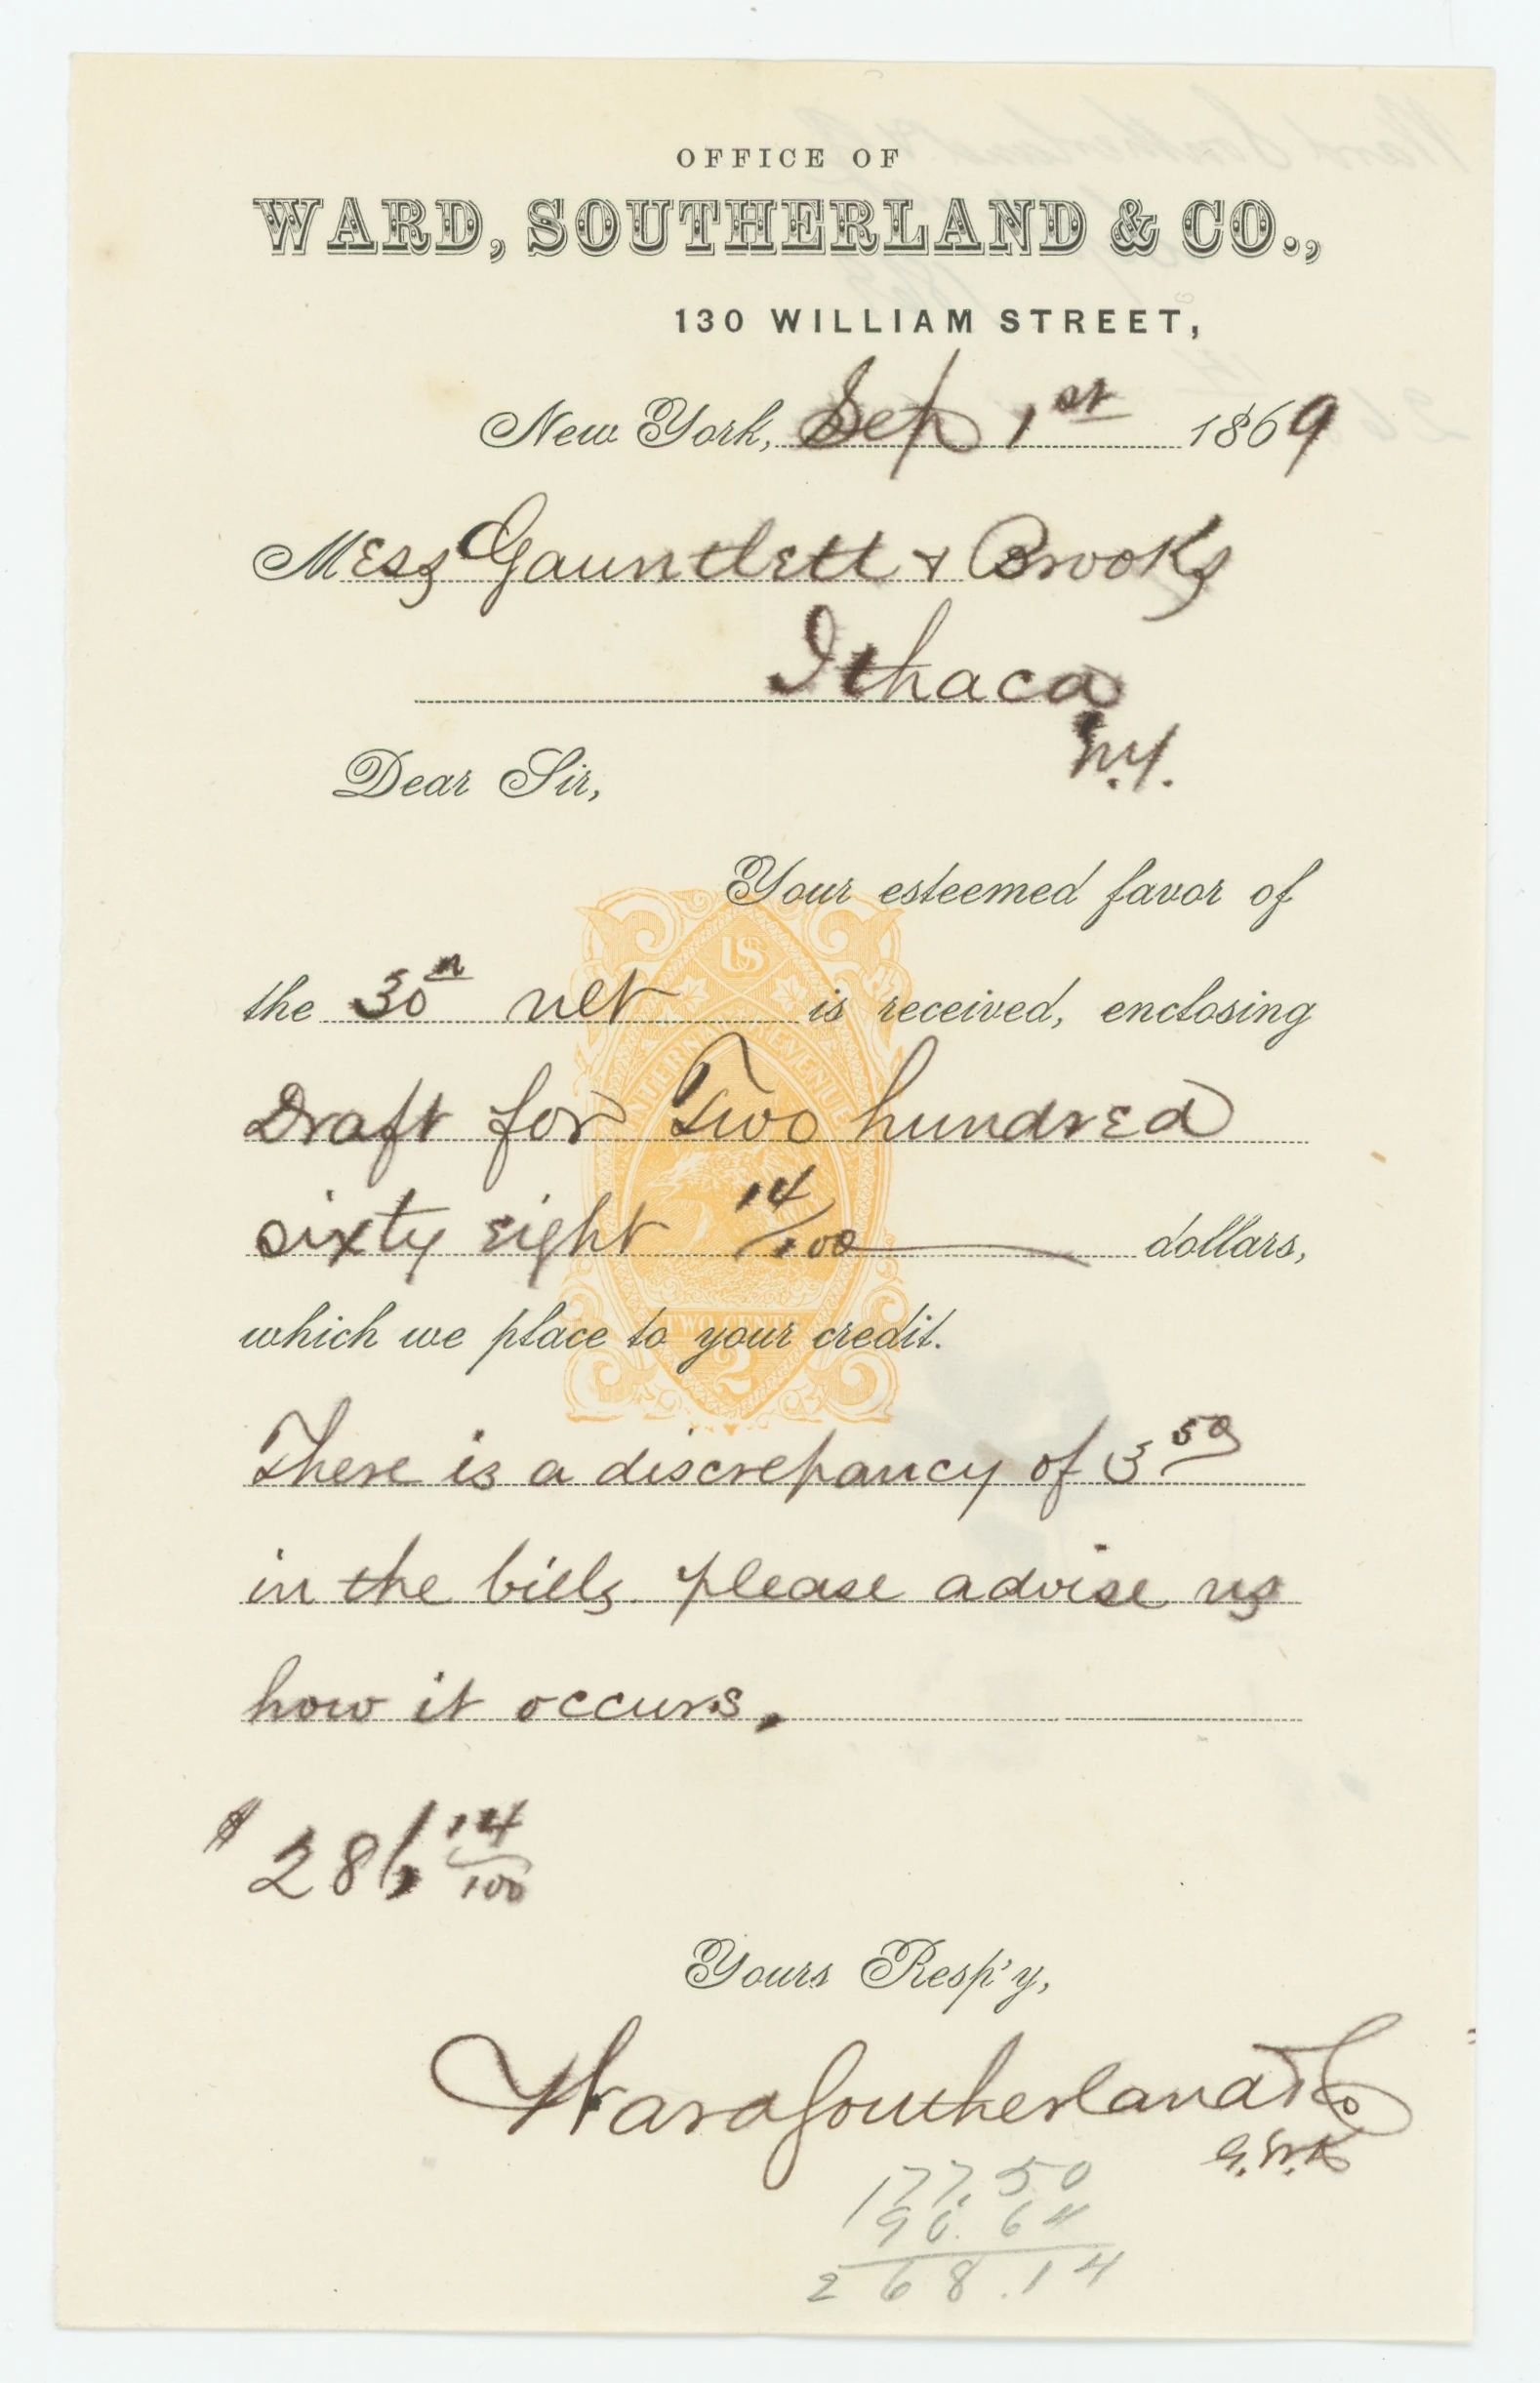 OFFICE OF
WARD, SOUTHERLAND & CO.,
130 WILLIAM STREET,
New York, Sep 1st 1869
Mess Gauntlett & Brooks
Ithaca
N.Y.
Dear Sir,
Your esteemed favor of
US
the 30th ult is received, enclosing
INTERNAL REVENUE
Draft for Two hundred
sixty eight 14/100 dollars,
TWO CENTS
which we place to your credit.
2
There is a discrepancy of 3 50
in the bills please advise us
how it occurs.
$ 286 14/100
Yours Resp'y,
Ward Southerland & Co
G.W.K
177.50
90.64
268.14